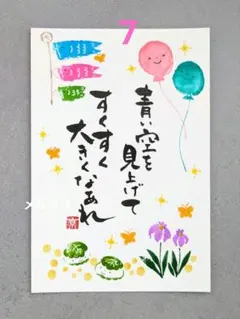 7
青い空を
見上げて
すくすく
大きくなあれ